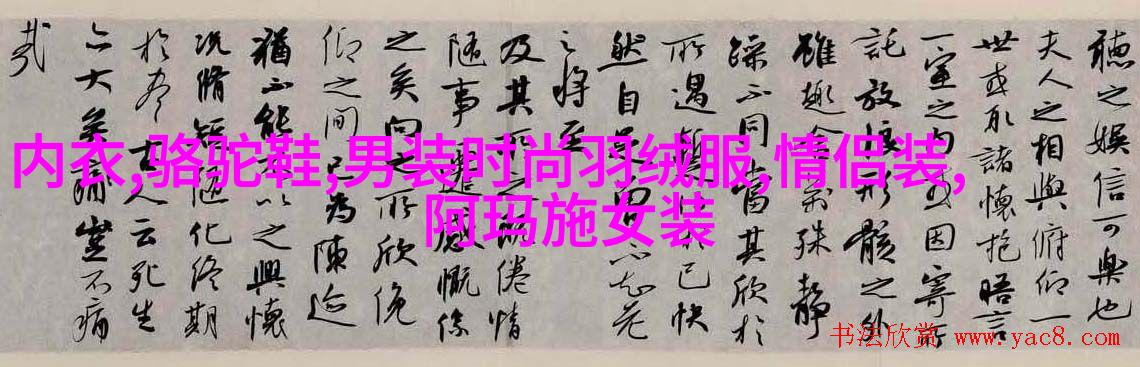 聴之娱信可樂也
夫人之相與俯仰一
世或取諸懷抱晤言
一室之内或因寄所
託放浪形骸之外
雖趣舍萬殊静
躁不同當其欣於
所遇暫得於己快
然自足不知老
之将至
及其所之既倦情
随事遷感慨係
之矣向之所欣俛
仰之間已為陳迹
猶不能不以之興懷
況脩短随化終期
於盡古人云死生
亦大矣豈不痛
哉
内衣,骆驼鞋,男装时尚羽绒服,情侣装,
阿玛施女装
书法欣赏 www.yac8.com